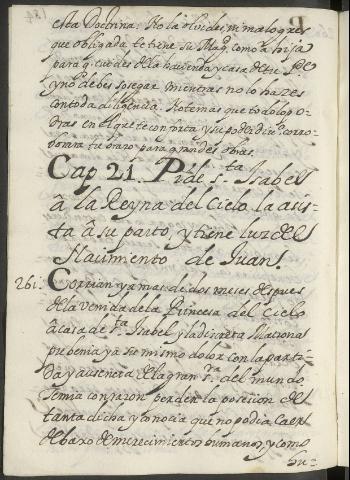 esta Doctrina. No la olvides, ni malogres
que obligada te tiene su Mag.d como a hija
para q. cuides de la hacienda y casa de tu P.e
y no debes sosegar mientras no lo hazes
con toda diligencia. No temas que todo lo po-
dras en el que te conforta, y su poder divi.o corro-
borara tu brazo para grandes obras.
Cap 21. Pide S.ta Isabel
â la Reyna del Cielo la asis-
ta â su parto, y tiene luz del
Nacimiento de Juan.
261. Corrian ya mas de dos meses despues
de la venida de la Princesa del Cielo
â casa de S.ta Isabel y la discreta Matrona
prebenia ya su mismo dolor con la parti-
da y ausencia de la gran S.ra del mundo.
Temia con razon perder la posesion de
tanta dicha, y conocia que no podia caer
debaxo de merecimientos humanos, y como
hu-